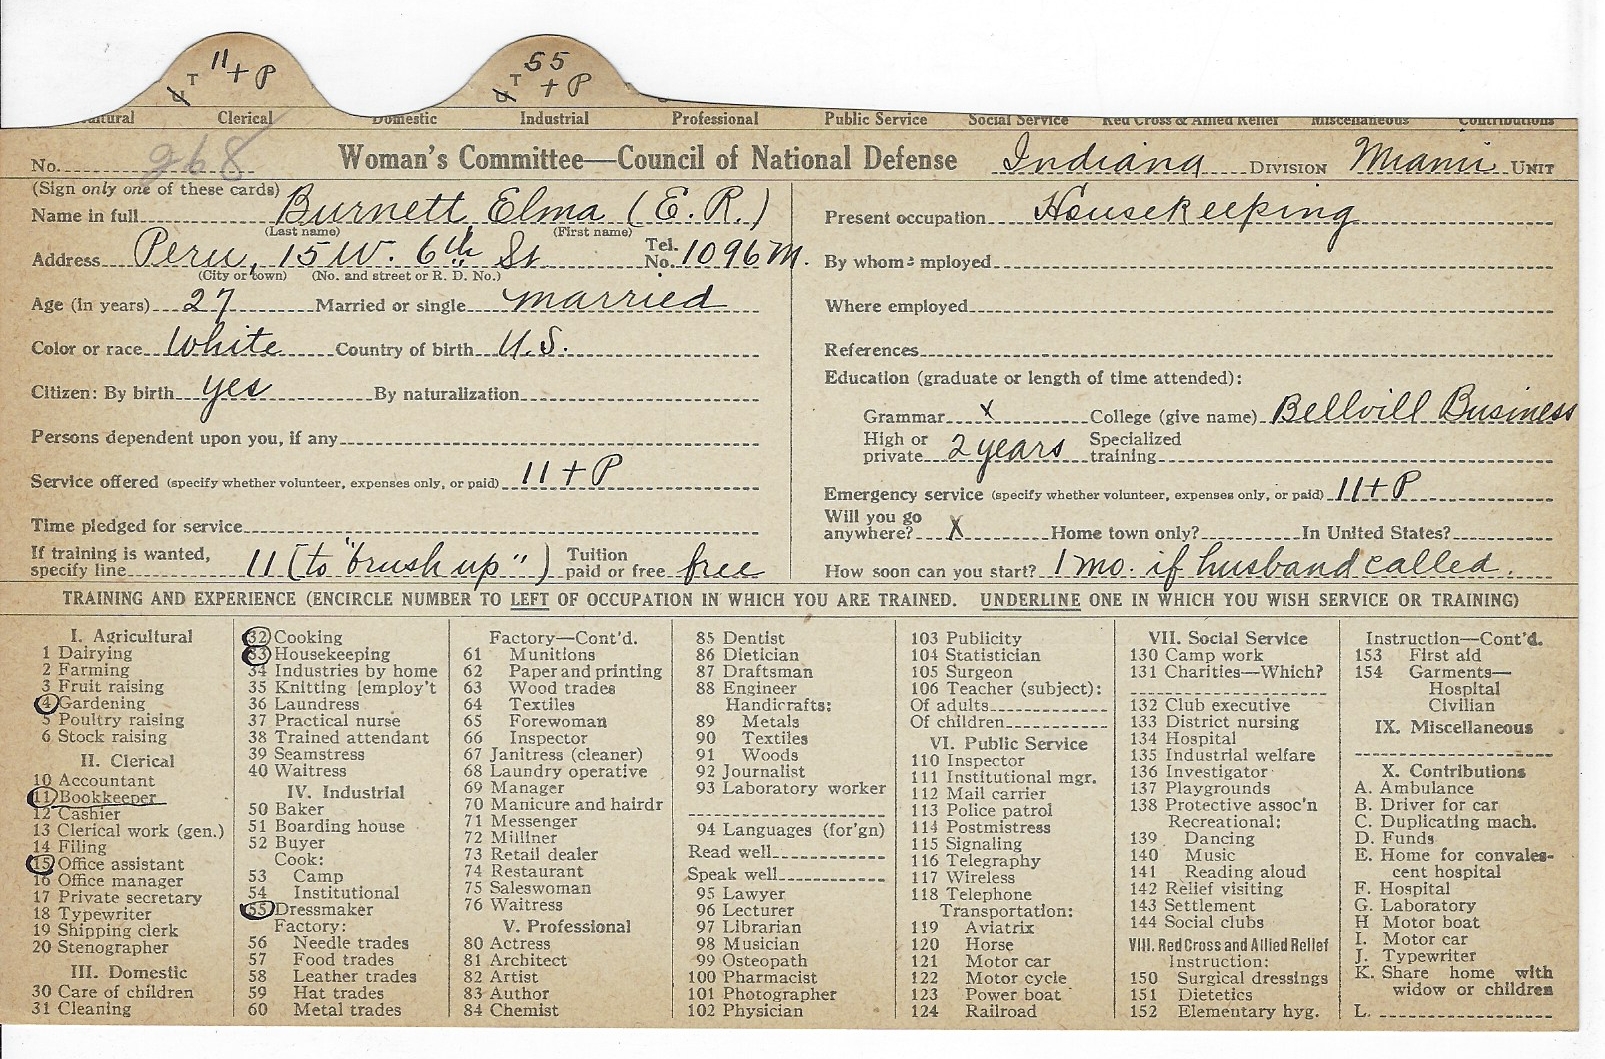 11 + P
T
U
55
+ P
T
U
Clerical Domestic Industrial Professional Public Service Social Service Red Cross & Allied Relief Miscellaneous Contributions
No. 968 Woman's Committee—Council of National Defense Indiana DIVISION Miami UNIT
(Sign only one of these cards)
Name in full Burnett Elma (E. R.)
(Last name) (First name)
Address Peru, 15 W. 6th St Tel. No. 1096 M.
(City or town) (No. and street or R. D. No.)
Age (in years) 27 Married or single married
Color or race White Country of birth U.S.
Citizen: By birth yes By naturalization
Persons dependent upon you, if any
Service offered (specify whether volunteer, expenses only, or paid) 11 + P
Time pledged for service
If training is wanted,
specify line 11 (to "brush up") Tuition paid or free free
Present occupation Housekeeping
By whom employed
Where employed
References
Education (graduate or length of time attended):
Grammar X College (give name) Bellvill Business
High or private 2 years Specialized training
Emergency service (specify whether volunteer, expenses only, or paid) 11 + P
Will you go
anywhere? X Home town only? In United States?
How soon can you start? 1 mo. if husband called.
TRAINING AND EXPERIENCE (ENCIRCLE NUMBER TO LEFT OF OCCUPATION IN WHICH YOU ARE TRAINED. UNDERLINE ONE IN WHICH YOU WISH SERVICE OR TRAINING)
I. Agricultural
1 Dairying
2 Farming
3 Fruit raising
4 Gardening
5 Poultry raising
6 Stock raising
II. Clerical
10 Accountant
11 Bookkeeper
12 Cashier
13 Clerical work (gen.)
14 Filing
15 Office assistant
16 Office manager
17 Private secretary
18 Typewriter
19 Shipping clerk
20 Stenographer
III. Domestic
30 Care of children
31 Cleaning
32 Cooking
33 Housekeeping
34 Industries by home
35 Knitting [employ't
36 Laundress
37 Practical nurse
38 Trained attendant
39 Seamstress
40 Waitress
IV. Industrial
50 Baker
51 Boarding house
52 Buyer
Cook:
53 Camp
54 Institutional
55 Dressmaker
Factory:
56 Needle trades
57 Food trades
58 Leather trades
59 Hat trades
60 Metal trades
Factory—Cont'd.
61 Munitions
62 Paper and printing
63 Wood trades
64 Textiles
65 Forewoman
66 Inspector
67 Janitress (cleaner)
68 Laundry operative
69 Manager
70 Manicure and hairdr
71 Messenger
72 Milliner
73 Retail dealer
74 Restaurant
75 Saleswoman
76 Waitress
V. Professional
80 Actress
81 Architect
82 Artist
83 Author
84 Chemist
85 Dentist
86 Dietician
87 Draftsman
88 Engineer
Handicrafts:
89 Metals
90 Textiles
91 Woods
92 Journalist
93 Laboratory worker
94 Languages (for'gn)
Read well
Speak well
95 Lawyer
96 Lecturer
97 Librarian
98 Musician
99 Osteopath
100 Pharmacist
101 Photographer
102 Physician
103 Publicity
104 Statistician
105 Surgeon
106 Teacher (subject):
Of adults
Of children
VI. Public Service
110 Inspector
111 Institutional mgr.
112 Mail carrier
113 Police patrol
114 Postmistress
115 Signaling
116 Telegraphy
117 Wireless
118 Telephone
Transportation:
119 Aviatrix
120 Horse
121 Motor car
122 Motor cycle
123 Power boat
124 Railroad
VII. Social Service
130 Camp work
131 Charities—Which?
132 Club executive
133 District nursing
134 Hospital
135 Industrial welfare
136 Investigator
137 Playgrounds
138 Protective assoc'n
Recreational:
139 Dancing
140 Music
141 Reading aloud
142 Relief visiting
143 Settlement
144 Social clubs
VIII. Red Cross and Allied Relief
Instruction:
150 Surgical dressings
151 Dietetics
152 Elementary hyg.
Instruction—Cont'd.
153 First aid
154 Garments—
Hospital
Civilian
IX. Miscellaneous
X. Contributions
A. Ambulance
B. Driver for car
C. Duplicating mach.
D. Funds
E. Home for convales-
cent hospital
F. Hospital
G. Laboratory
H Motor boat
I. Motor car
J. Typewriter
K. Share home with
widow or children
L.